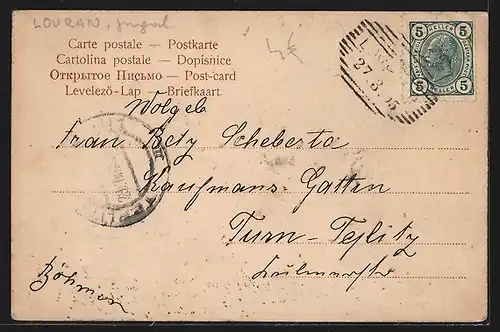 LOVRAN, Jugosl
4€
Carte postale — Postkarte
Cartolina postale — Dopisnice
Открытое Письмо — Post-card
Levelező-Lap — Briefkaart.
5 5
HELLER HELLER
5 5
27 3 05
Wolgeb
Frau Betz Scheberta
Kaufmanns-Gattin
Turn-Teplitz
Böhmen